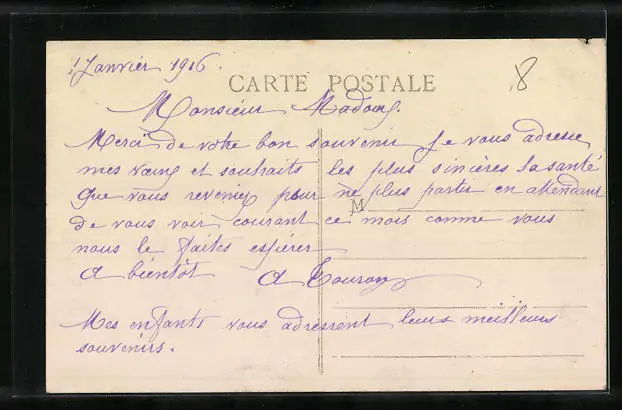 1 Janvier 1916.
8
CARTE POSTALE
Monsieur Madouy.
Merci de votre bon souvenir Je vous adresse
mes vœux et souhaits les plus sincères La santé
que vous reveniez pour ne plus partir en attendant
M
de vous voir courant ce mois comme vous
nous le faites espérer
A bientôt A Touron
Mes enfants vous adressent leurs meilleurs
souvenirs.